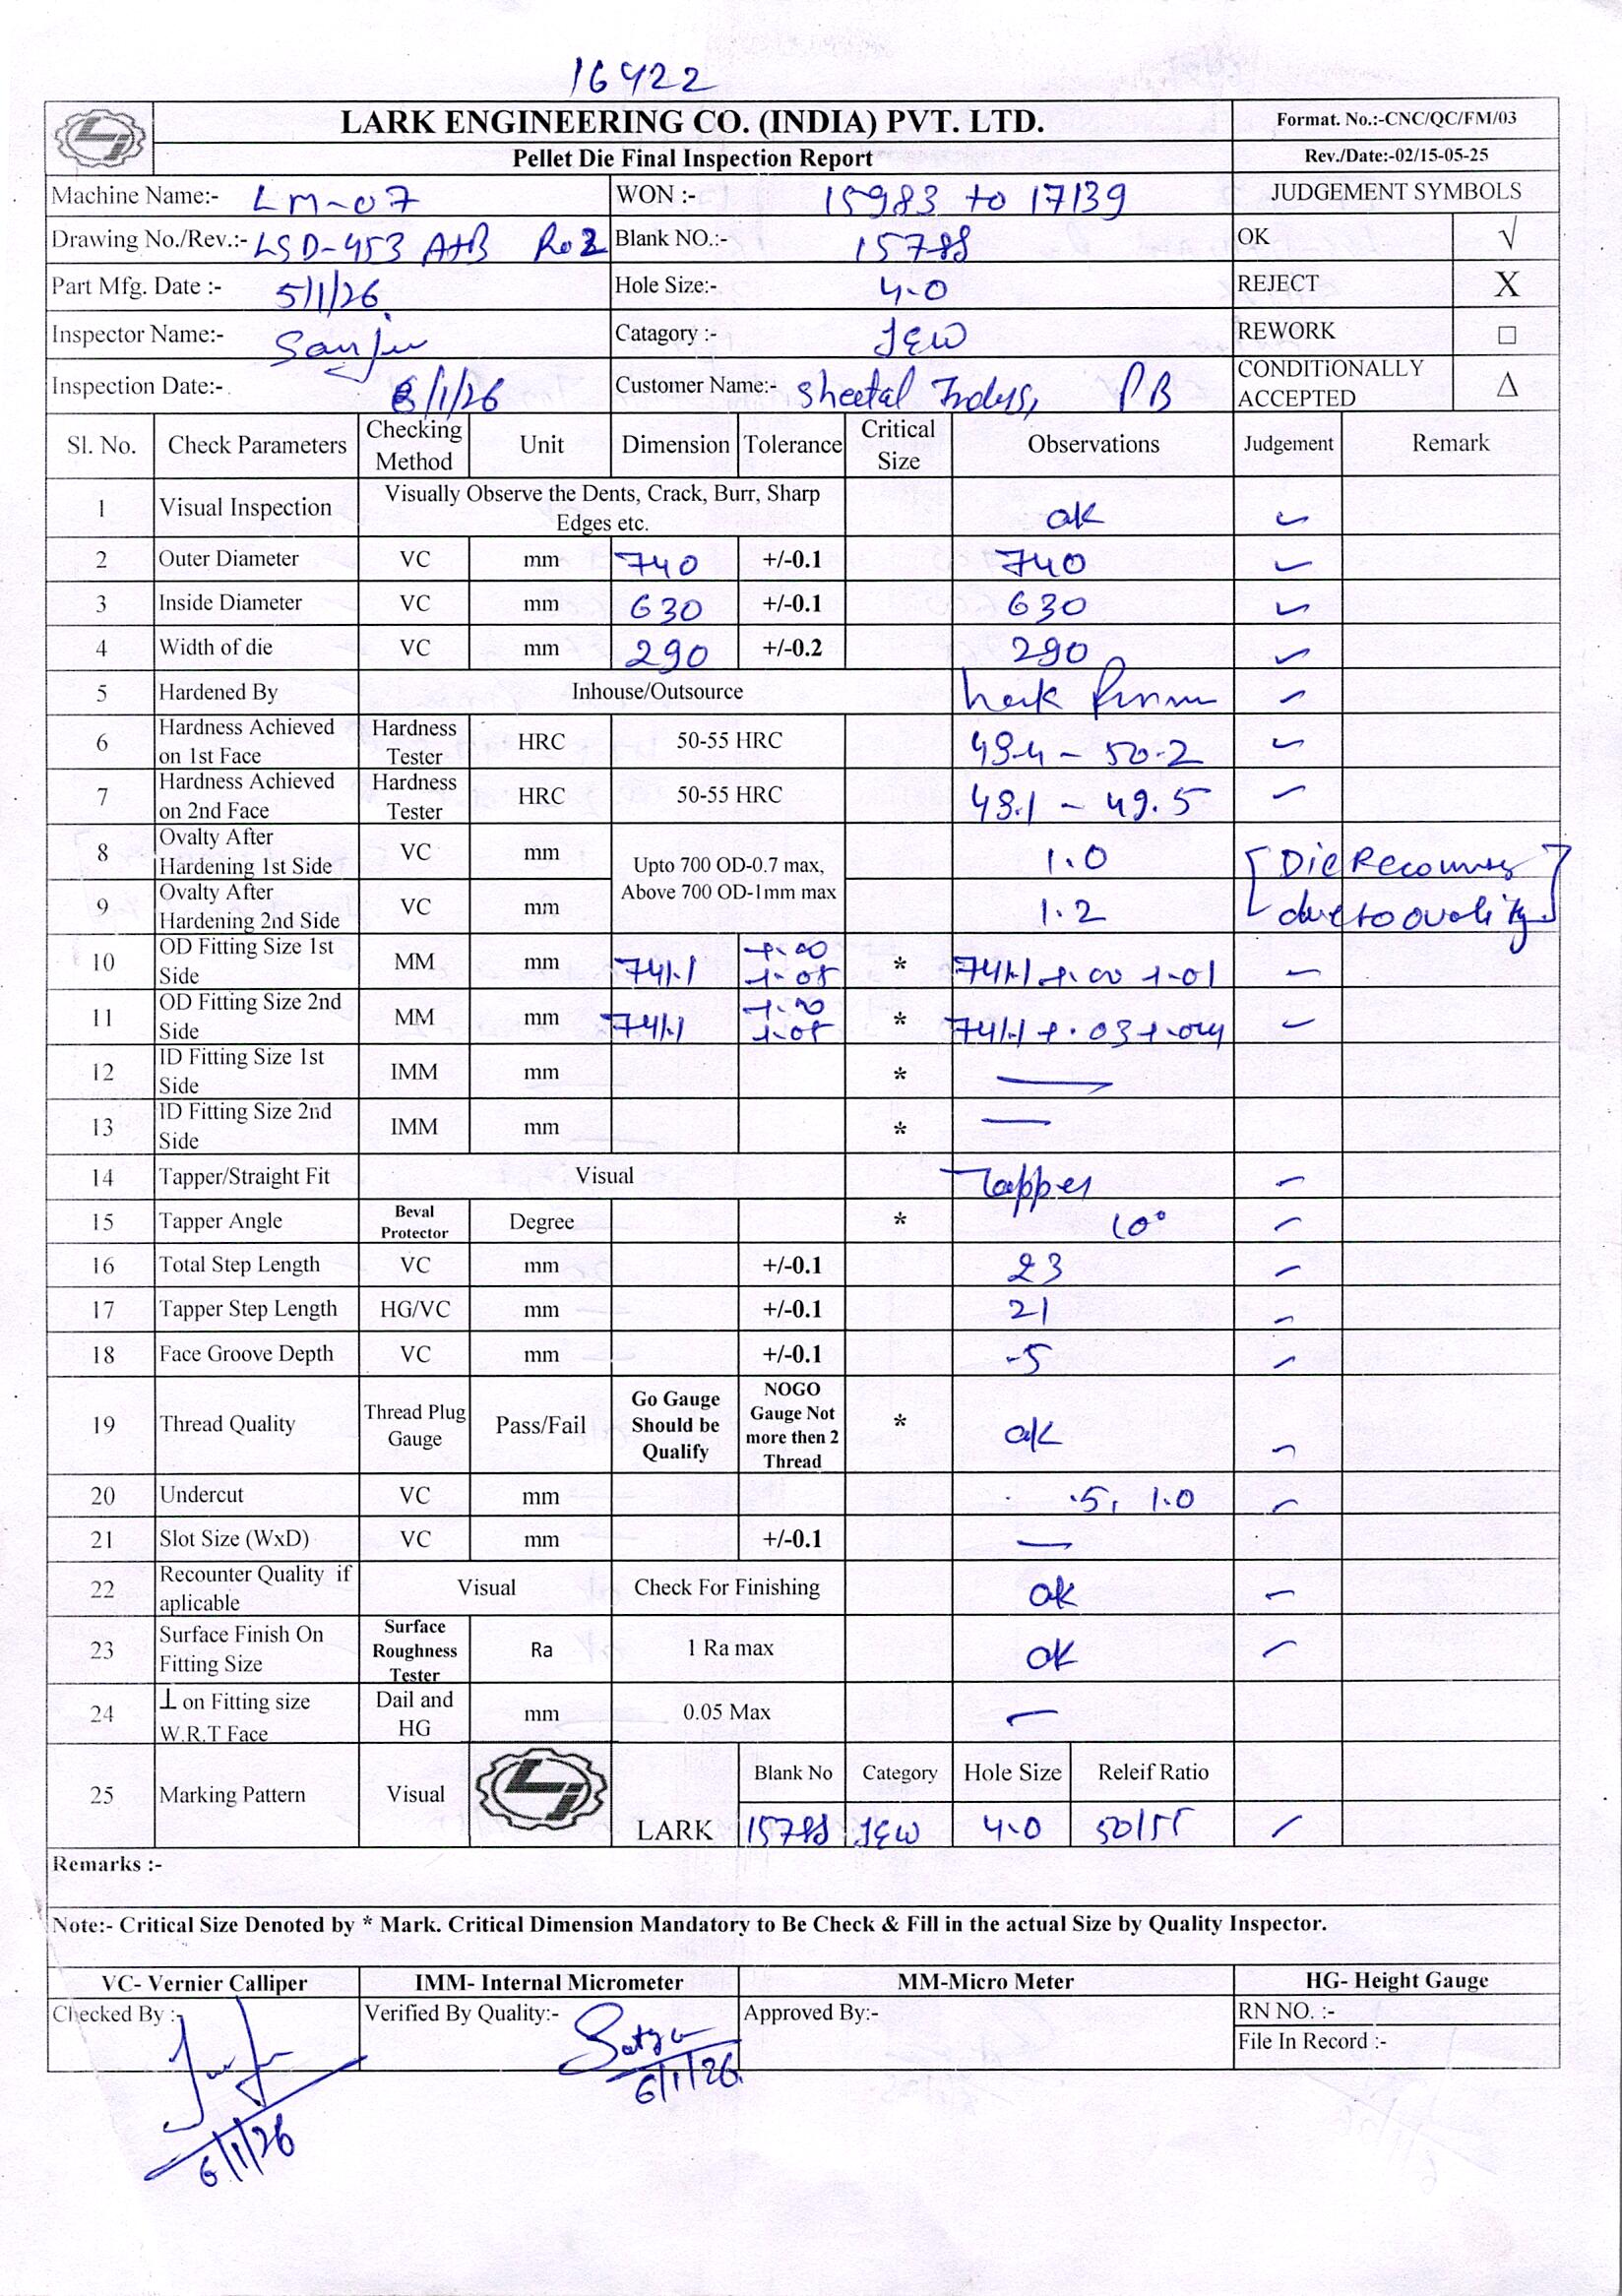 16422
LARK ENGINEERING CO. (INDIA) PVT. LTD.
Format. No.:-CNC/QC/FM/03
Pellet Die Final Inspection Report
Rev./Date:-02/15-05-25
Machine Name:- LM-07 WON :- 15983 to 17139 JUDGEMENT SYMBOLS
Drawing No./Rev.:- LSD-453 A+B R02 Blank NO.:- 15788 OK √
Part Mfg. Date :- 5/1/26 Hole Size:- 4.0 REJECT X
Inspector Name:- Sanju Catagory :- JEW REWORK □
Inspection Date:- 6/1/26 Customer Name:- Sheetal PB CONDITIONALLY ACCEPTED Δ
Sl. No. Check Parameters Checking Method Unit Dimension Tolerance Critical Size Observations Judgement Remark
1 Visual Inspection Visually Observe the Dents, Crack, Burr, Sharp Edges etc. ok ✓
2 Outer Diameter VC mm 740 +/-0.1 740 ✓
3 Inside Diameter VC mm 630 +/-0.1 630 ✓
4 Width of die VC mm 290 +/-0.2 290 ✓
5 Hardened By Inhouse/Outsource ✓
6 Hardness Achieved on 1st Face Hardness Tester HRC 50-55 HRC - 50.2 ✓
7 Hardness Achieved on 2nd Face Hardness Tester HRC 50-55 HRC - 49.5 ✓
8 Ovalty After Hardening 1st Side VC mm Upto 700 OD-0.7 max, Above 700 OD-1mm max 1.0 [Die
9 Ovalty After Hardening 2nd Side VC mm 1.2 due to ovality]
10 OD Fitting Size 1st Side MM mm 741.1 +.00 +.05 * 741.1 +.00 +.01 ✓
11 OD Fitting Size 2nd Side MM mm 741.1 +.00 +.05 * 741.1 +.03 +.04 ✓
12 ID Fitting Size 1st Side IMM mm * —
13 ID Fitting Size 2nd Side IMM mm * —
14 Tapper/Straight Fit Visual Tapper ✓
15 Tapper Angle Beval Protector Degree * 10° ✓
16 Total Step Length VC mm +/-0.1 23 ✓
17 Tapper Step Length HG/VC mm +/-0.1 21 ✓
18 Face Groove Depth VC mm +/-0.1 .5 ✓
19 Thread Quality Thread Plug Gauge Pass/Fail Go Gauge Should be Qualify NOGO Gauge Not more then 2 Thread * ok ✓
20 Undercut VC mm .5, 1.0 ✓
21 Slot Size (WxD) VC mm +/-0.1 —
22 Recounter Quality if aplicable Visual Check For Finishing ok ✓
23 Surface Finish On Fitting Size Surface Roughness Tester Ra 1 Ra max ok ✓
24 ⊥ on Fitting size W.R.T Face Dail and HG mm 0.05 Max —
25 Marking Pattern Visual LARK Blank No Category Hole Size Releif Ratio
15788 JEW 4.0 50/55 ✓
Remarks :-
Note:- Critical Size Denoted by * Mark. Critical Dimension Mandatory to Be Check & Fill in the actual Size by Quality Inspector.
VC- Vernier Calliper IMM- Internal Micrometer MM-Micro Meter HG- Height Gauge
Checked By :- Verified By Quality:- Satya Approved By:- RN NO. :-
File In Record :-
6/1/26
6/1/26